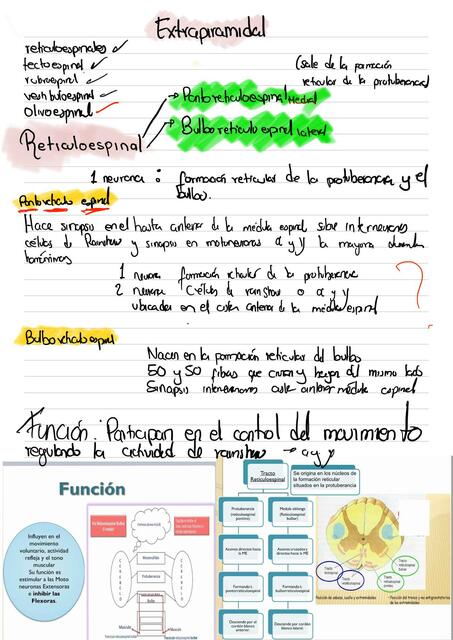 Extrapiramidal
reticuloespinales
tectoespinal
rubroespinal
vestibuloespinal
Olivoespinal
(sale de la formación
reticular de la protuberancia)
Pontoreticuloespinal medial
Bulboreticuloespinal lateral
Reticuloespinal
1 neurona : formación reticular de la protuberancia y el
bulbo.
Pontoreticulo espinal
Hace sinapsis en el hasta anterior de la médula espinal sobre interneuronas
células de Rainshow y sinapsis en motoneuronas α y γ la mayoría
1 neurona formación reticular de la protuberancia
2 neurona Células de rainshow o α y γ
ubicadas en el asta anterior de la médula espinal
Bulboreticuloespinal
Nacen en la formación reticular del bulbo
50 y 50 fibras que cruzan y bajan del mismo lado
Sinapsis interneuronas asta anterior médula espinal
Función : Participan en el control del movimiento
regulando la actividad de rainshow → α y γ
Función
Influyen en el
movimiento
voluntario, actividad
refleja y el tono
muscular
Su función es
estimular a las Moto
neuronas Extensoras
e inhibir las
Flexoras.
Mesencéfalo
Protuberancia
Bulbo
Músculo
Músculo
Tracto
Reticuloespinal
Se origina en los núcleos de
la formación reticular
situados en la protuberancia
Protuberancia
(reticuloespinal
pontino)
Médula oblonga
(Reticuloespinal
bulbar)
Axones directos hacia
la ME
Axones cruzados y
directos hacia la ME
Formando t.
pontorreticuloespinal
Formando t.
bulborreticuloespinal
Desciende por el
cordón blanco
anterior
Desciende por el
cordón blanco
lateral